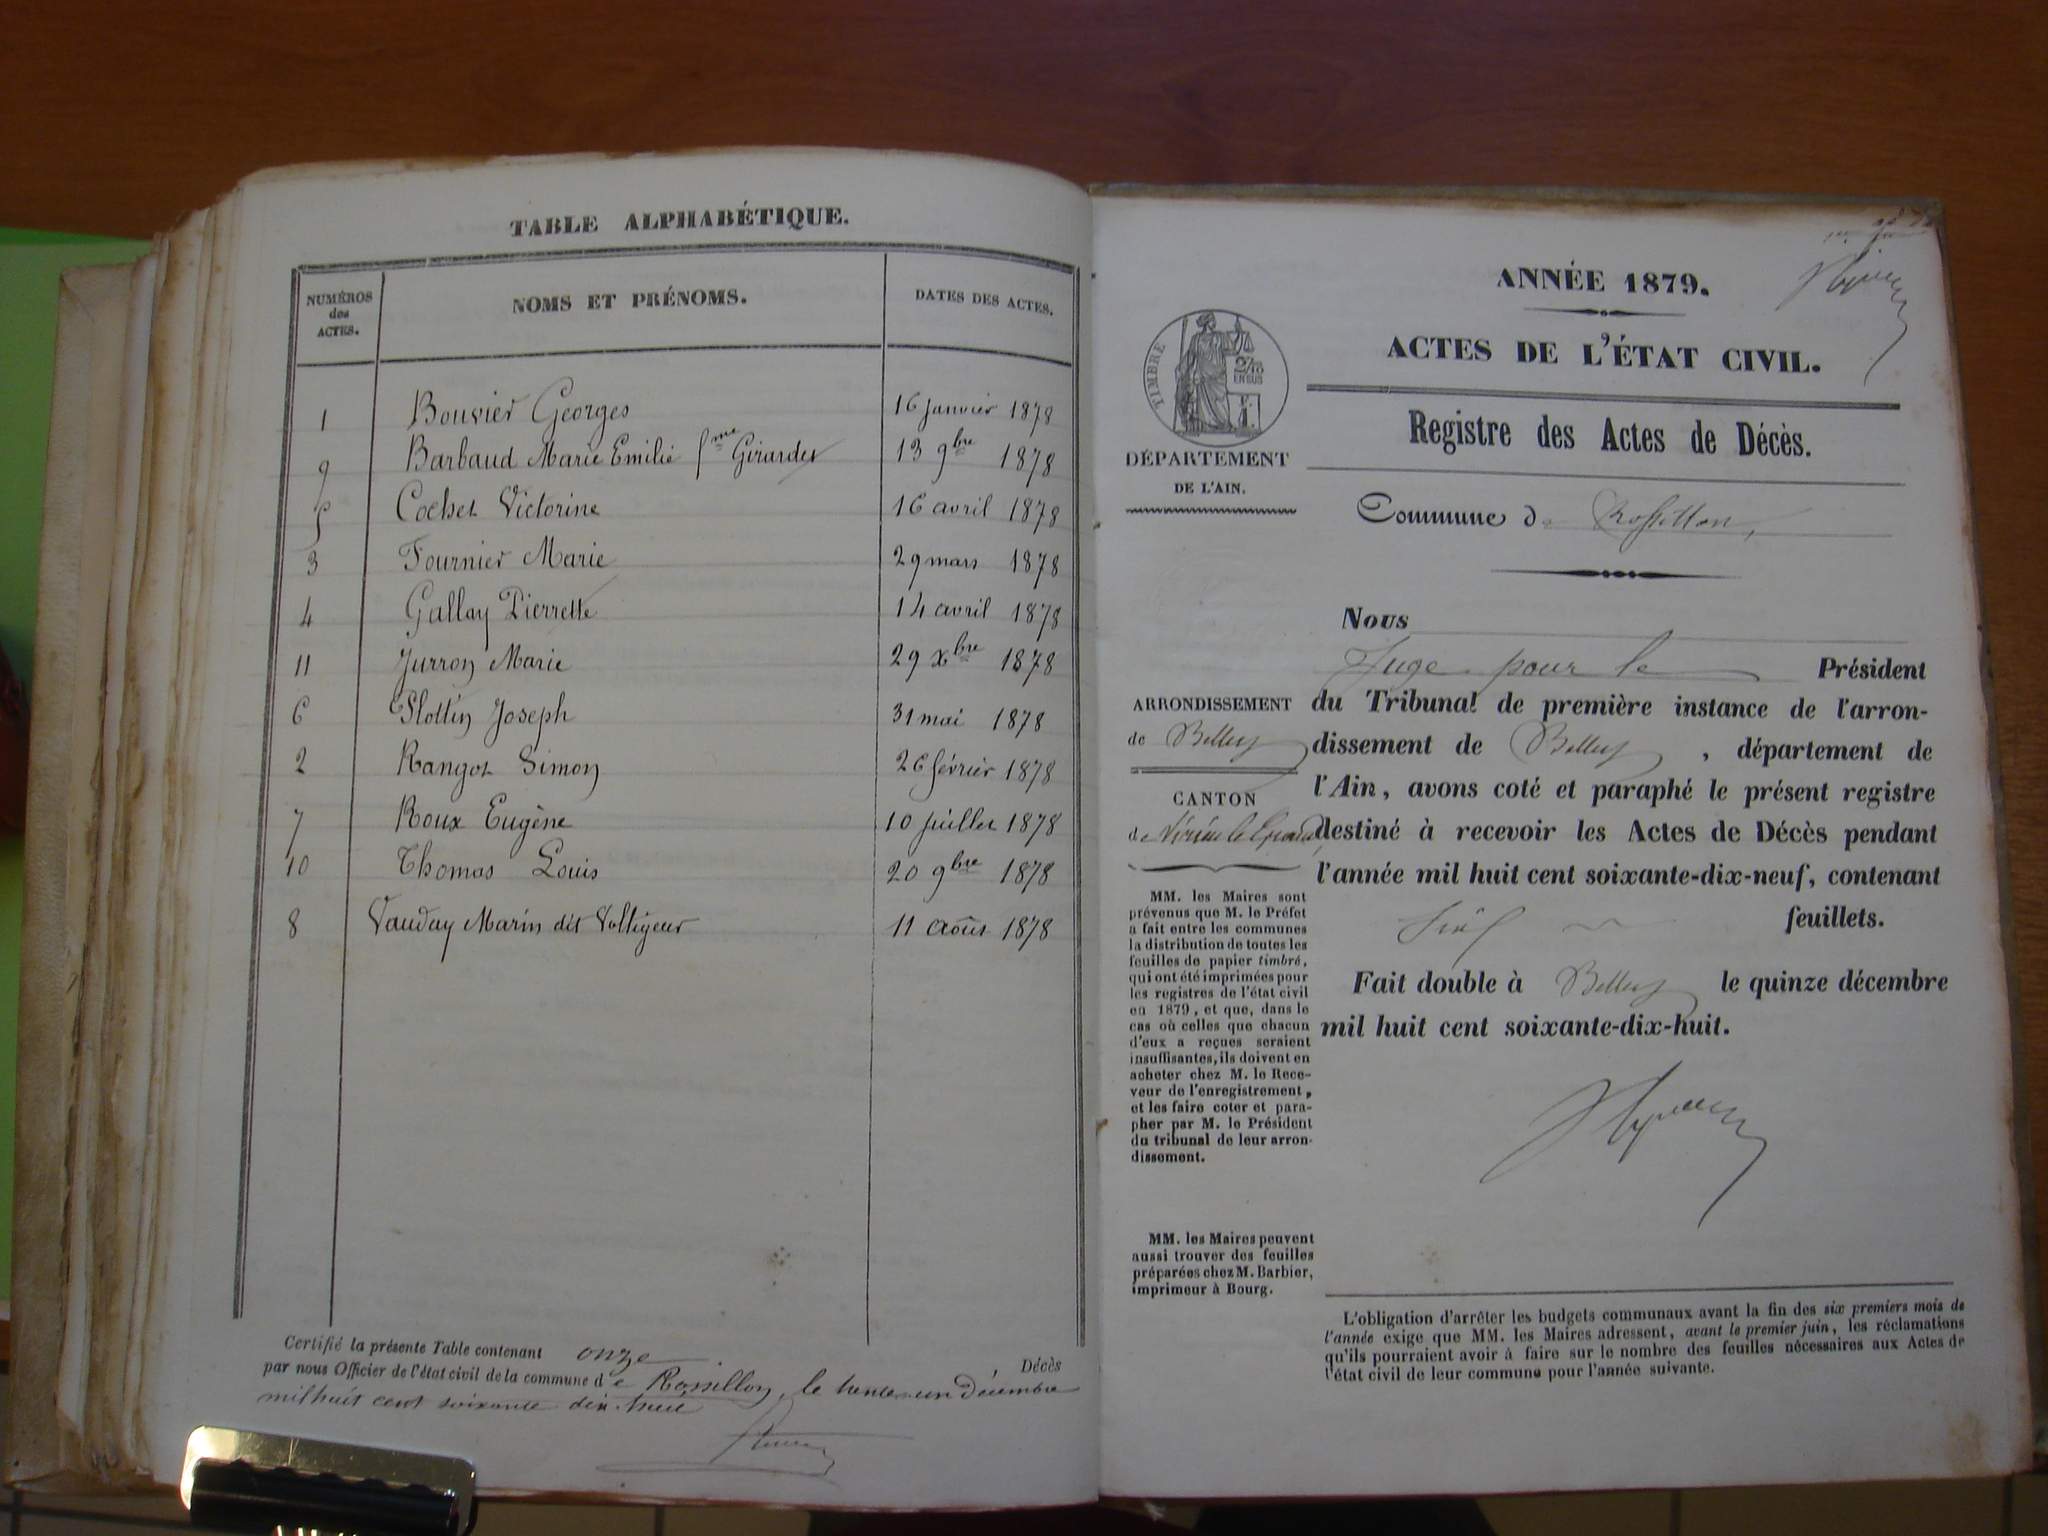 TABLE ALPHABÉTIQUE.
NUMÉROS des ACTES. NOMS ET PRÉNOMS. DATES DES ACTES.
1 Bouvier Georges 16 janvier 1878
9 Barbaud Marie Emilie fme Girardet 13 9bre 1878
5 Cochet Victorine 16 avril 1878
3 Fournier Marie 29 mars 1878
4 Gallay Pierrette 14 avril 1878
11 Jurron Marie 29 xbre 1878
6 Plottin Joseph 31 mai 1878
2 Rangot Simon 26 février 1878
7 Roux Eugène 10 juillet 1878
10 Thomas Louis 20 9bre 1878
8 Vauday Marin dit Voltigeur 11 août 1878
Certifié la présente Table contenant onze Décès
par nous Officier de l'état civil de la commune de Rossillon, le trente-un Décembre
mil huit cent soixante dix-huit
ANNÉE 1879.
ACTES DE L'ÉTAT CIVIL.
Registre des Actes de Décès.
TIMBRE
2/10
EN SUS
DÉPARTEMENT
DE L'AIN.
Commune de Rossillon,
ARRONDISSEMENT
de Belley
CANTON
de Virieu le Grand
MM. les Maires sont
prévenus que M. le Préfet
a fait entre les communes
la distribution de toutes les
feuilles de papier timbré,
qui ont été imprimées pour
les registres de l'état civil
en 1879, et que, dans le
cas où celles que chacun
d'eux a reçues seraient
insuffisantes, ils doivent en
acheter chez M. le Rece-
veur de l'enregistrement,
et les faire coter et para-
pher par M. le Président
du tribunal de leur arron-
dissement.
MM. les Maires peuvent
aussi trouver des feuilles
préparées chez M. Barbier,
imprimeur à Bourg.
Nous
Juge pour le Président
du Tribunal de première instance de l'arron-
dissement de Belley, département de
l'Ain, avons coté et paraphé le présent registre
destiné à recevoir les Actes de Décès pendant
l'année mil huit cent soixante-dix-neuf, contenant
feuillets.
Fait double à Belley le quinze décembre
mil huit cent soixante-dix-huit.
L'obligation d'arrêter les budgets communaux avant la fin des six premiers mois de
l'année exige que MM. les Maires adressent, avant le premier juin, les réclamations
qu'ils pourraient avoir à faire sur le nombre des feuilles nécessaires aux Actes de
l'état civil de leur commune pour l'année suivante.